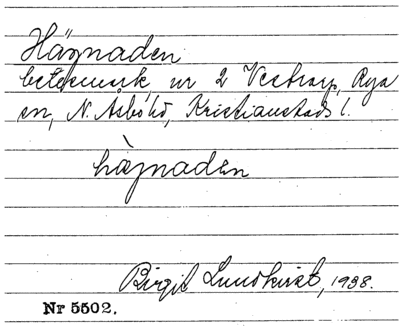 Hägnaden
betesmark nr 2 Vestrarp, Rya
sn, N. Åsbo hd, Kristianstads l.
hàgnaden
Birgit Lundkvist, 1938.
Nr 5502.